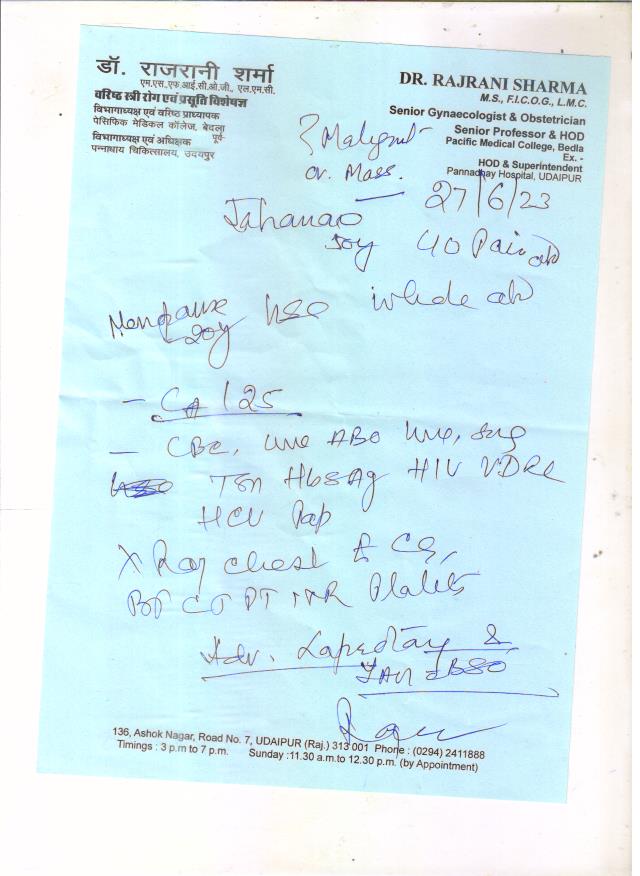 डॉ. राजरानी शर्मा
एम.एस.,एफ.आई.सी.ओ.जी., एल.एम.सी.
वरिष्ठ स्त्री रोग एवं प्रसूति विशेषज्ञ
विभागाध्यक्ष एवं वरिष्ठ प्राध्यापक
पेसिफिक मेडिकल कॉलेज, बेदला
पूर्व-
विभागाध्यक्ष एवं अधीक्षक
पन्नाधाय चिकित्सालय, उदयपुर
DR. RAJRANI SHARMA
M.S., F.I.C.O.G., L.M.C.
Senior Gynaecologist & Obstetrician
Senior Professor & HOD
Pacific Medical College, Bedla
Ex. -
HOD & Superintendent
Pannadhay Hospital, UDAIPUR
? Malignt
ov. Mass.
27/6/23
40 Pain ab
Menopause whole ab
20y
- CA 125
- CBC, ABO
HbsAg HIV VDRL
HCV Pap
X Ray chest ECG,
BT CT PT INR Platlets
Adv. &
136, Ashok Nagar, Road No. 7, UDAIPUR (Raj.) 313 001 Phone : (0294) 2411888
Timings : 3 p.m to 7 p.m. Sunday :11.30 a.m.to 12.30 p.m. (by Appointment)